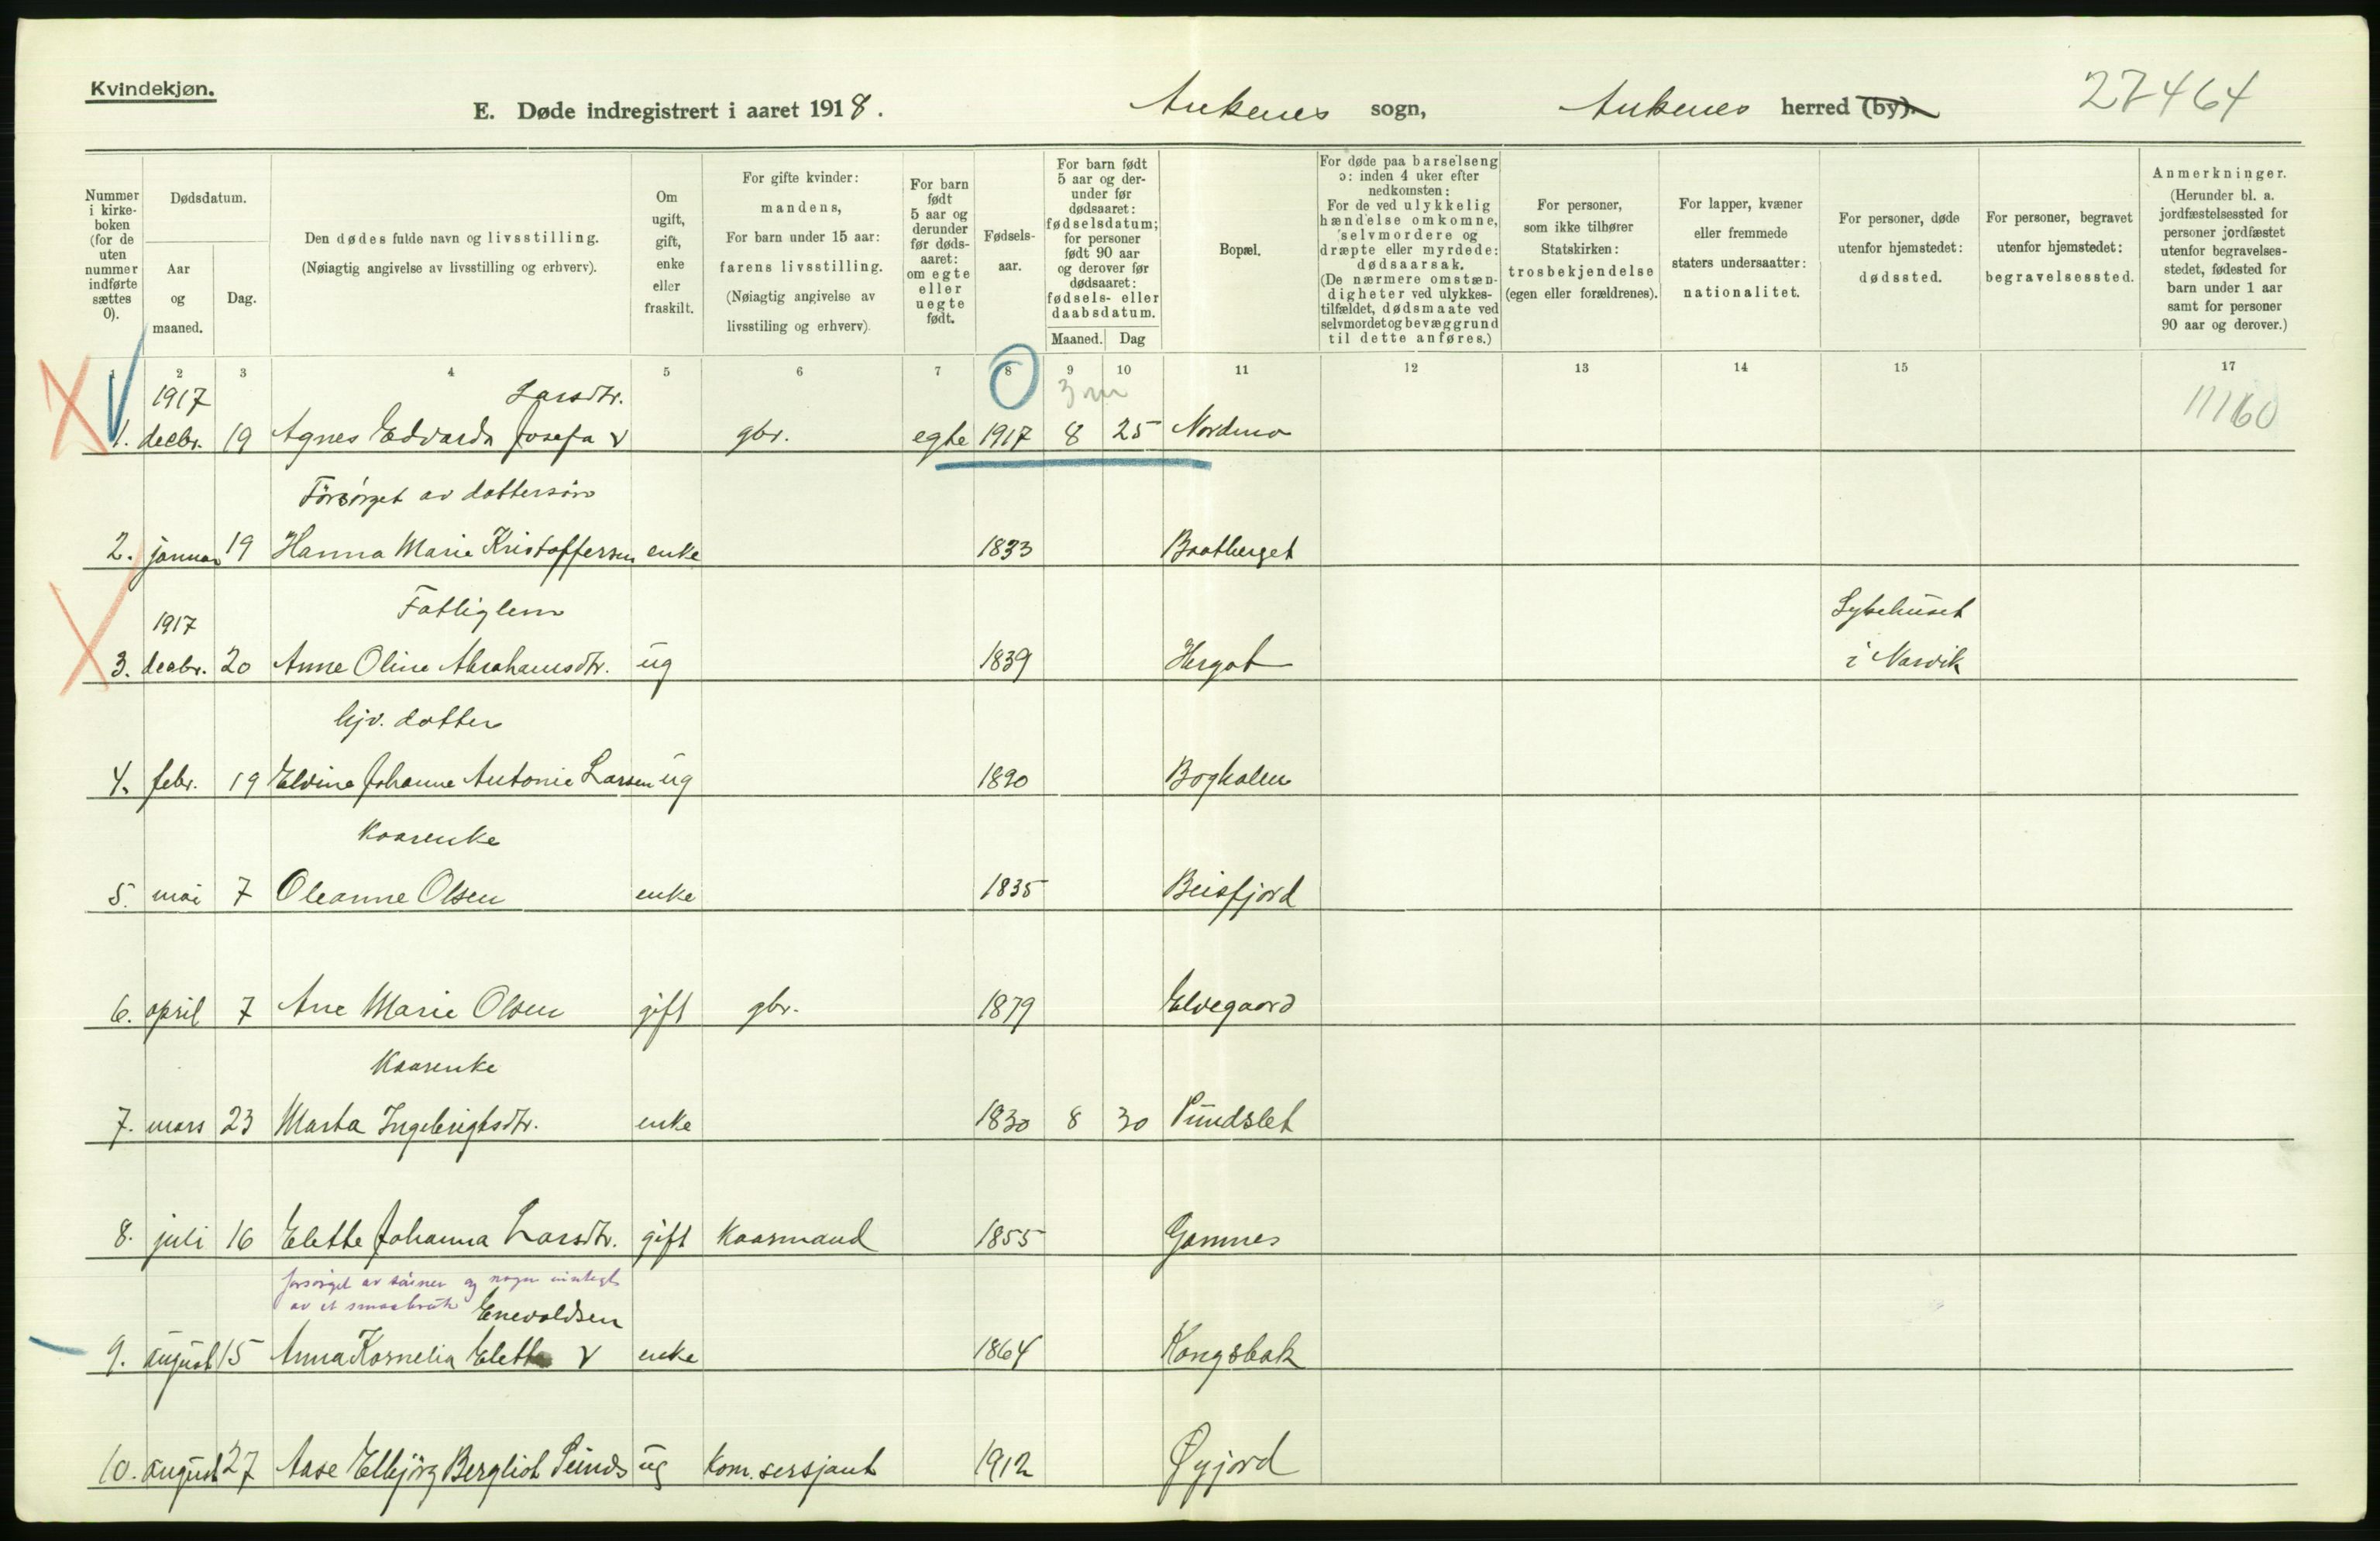 Kvindekjøn.
E. Døde indregistrert i aaret 1918. Ankenes sogn, Ankenes herred (by). 27464
Nummer i kirkeboken (for de uten nummer indførte sættes 0).
Dødsdatum.
Aar og maaned.
Dag.
Den dødes fulde navn og livsstilling.
(Nøiagtig angivelse av livsstilling og erhverv).
Om ugift, gift, enke eller fraskilt.
For gifte kvinder: mandens,
For barn under 15 aar: farens livsstilling.
(Nøiagtig angivelse av livsstiling og erhverv).
For barn født 5 aar og derunder før dødsaaret: om egte eller uegte født.
Fødselsaar.
For barn født 5 aar og derunder før dødsaaret: fødselsdatum; for personer født 90 aar og derover før dødsaaret: fødsels- eller daabsdatum.
Maaned. Dag
Bopæl.
For døde paa barselseng ɔ: inden 4 uker efter nedkomsten:
For de ved ulykkelig hændelse omkomne, selvmordere og dræpte eller myrdede: dødsaarsak.
(De nærmere omstændigheter ved ulykkestilfældet, dødsmaate ved selvmordet og bevæggrund til dette anføres.)
For personer, som ikke tilhører Statskirken: trosbekjendelse (egen eller forældrenes).
For lapper, kvæner eller fremmede staters undersaatter: nationalitet.
For personer, døde utenfor hjemstedet: dødssted.
For personer, begravet utenfor hjemstedet: begravelsessted.
Anmerkninger.
(Herunder bl. a. jordfæstelsessted for personer jordfæstet utenfor begravelsesstedet, fødested for barn under 1 aar samt for personer 90 aar og derover.)
1 2 3 4 5 6 7 8 9 10 11 12 13 14 15 17
1917 Larsdtr. 3 m 11160
1. decbr. 19 Agnes Edvarda Josefa v gbr. egte 1917 8 25 Nordmo
Forsørget av dattersøn
2. januar 19 Hanna Marie Kristoffersen enke 1833 Baatberget
1917 Fattiglem Sykehuset
3. decbr. 20 Anne Oline Abrahamsdtr. ug 1839 Hergot i Narvik
hjv. datter
4. febr. 19 Eldine Johanne Antonie Larsen ug 1890 Bogholm
Kaarenke
5. mai 7 Oleanne Olsen enke 1835 Beisfjord
6. april 7 Ane Marie Olsen gift gbr. 1879 Elvegaard
Kaarenke
7. mars 23 Marta Ingebrigtsdtr. enke 1830 8 30 Pundslet
8. juli 16 Elette Johanna Larsdtr. gift Kaarmand 1855 Gamnes
forsørget av sønner og noget
av et smaabruk Enevoldsen
9. august 15 Anna Kornelia Elette v enke 1864 Kongsbak
10. august 27 Aase Elbjørg Bergliot Seines ug Kom. sersjant 1912 Øyjord